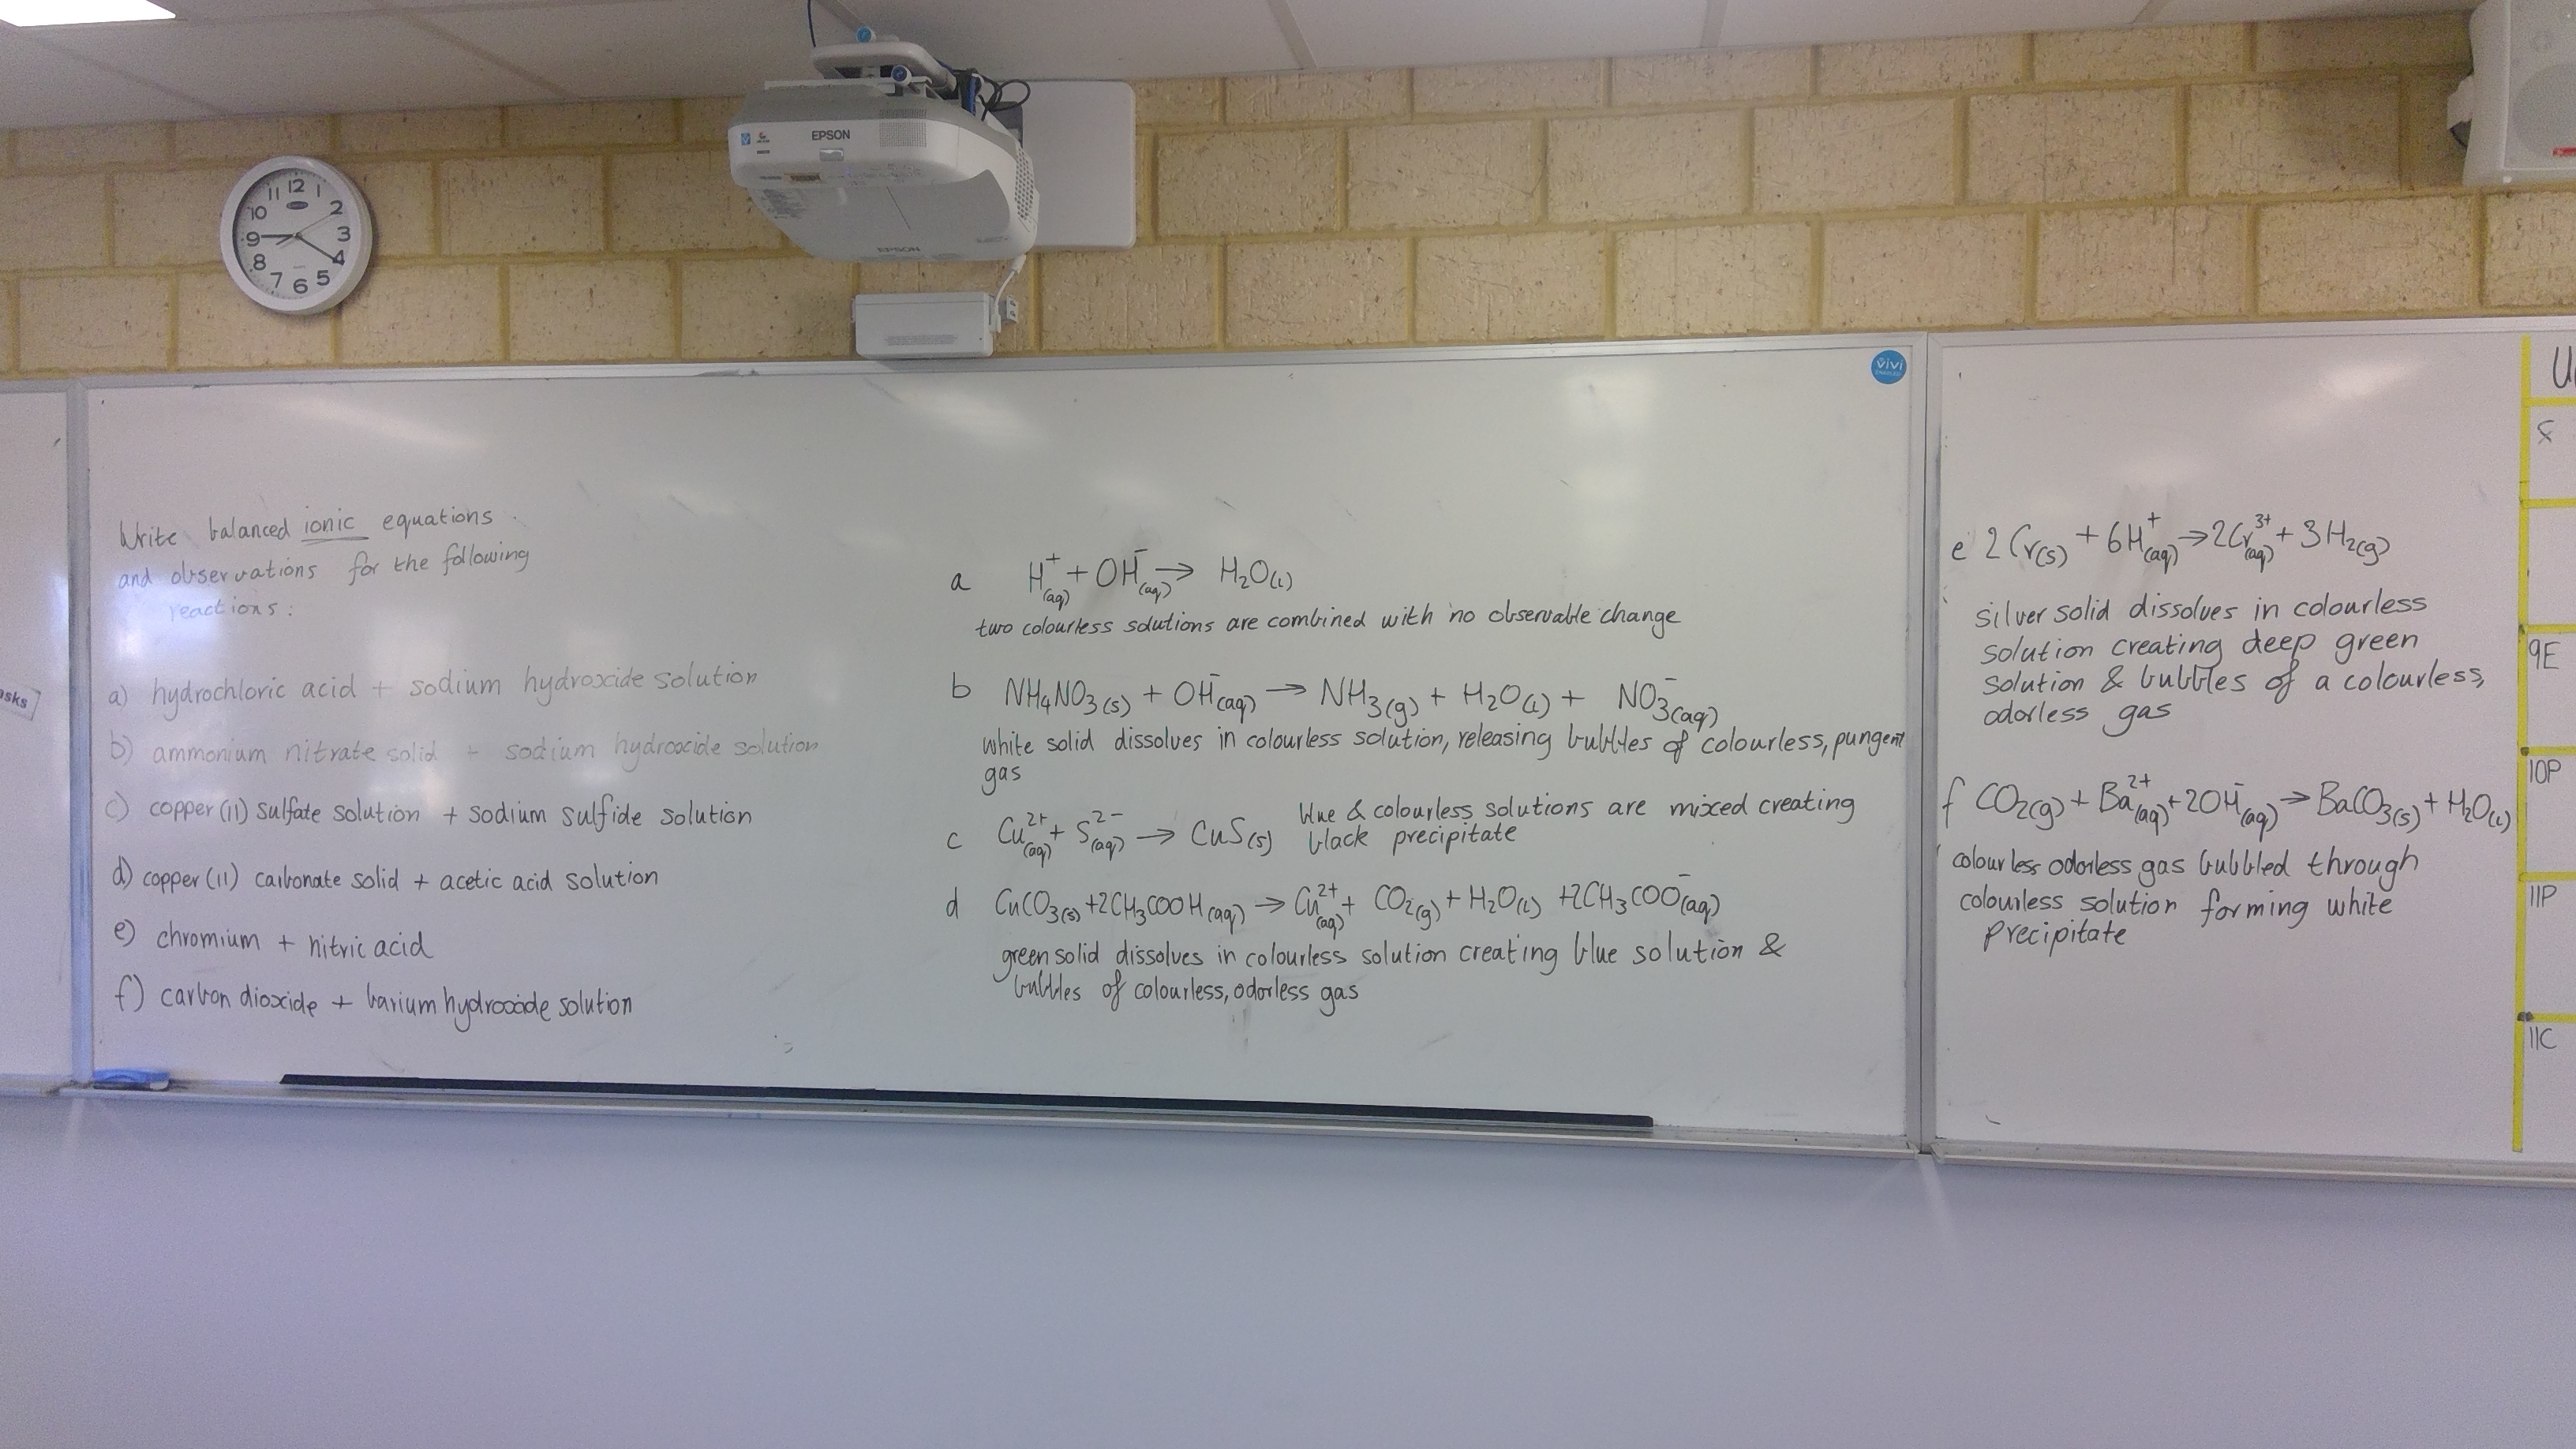 EPSON
EPSON
12
1
2
3
4
5
6
7
8
9
10
11
vivi
asks
Write balanced ionic equations
and observations for the following
reactions:
a) hydrochloric acid + sodium hydroxide solution
b) ammonium nitrate solid + sodium hydroxide solution
c) copper (II) sulfate solution + sodium sulfide solution
d) copper (II) carbonate solid + acetic acid solution
e) chromium + nitric acid
f) carbon dioxide + barium hydroxide solution
a H⁺(aq) + OH⁻(aq) → H₂O(l)
two colourless solutions are combined with no observable change
b NH₄NO₃(s) + OH⁻(aq) → NH₃(g) + H₂O(l) + NO₃⁻(aq)
white solid dissolves in colourless solution, releasing bubbles of colourless, pungent
gas
c Cu²⁺(aq) + S²⁻(aq) → CuS(s) blue & colourless solutions are mixed creating
black precipitate
d CuCO₃(s) + 2CH₃COOH(aq) → Cu²⁺(aq) + CO₂(g) + H₂O(l) + 2CH₃COO⁻(aq)
green solid dissolves in colourless solution creating blue solution &
bubbles of colourless, odorless gas
e 2Cr(s) + 6H⁺(aq) → 2Cr³⁺(aq) + 3H₂(g)
silver solid dissolves in colourless
solution creating deep green
solution & bubbles of a colourless,
odorless gas
f CO₂(g) + Ba²⁺(aq) + 2OH⁻(aq) → BaCO₃(s) + H₂O(l)
colourless odorless gas bubbled through
colourless solution forming white
precipitate
9E
10P
11P
11C